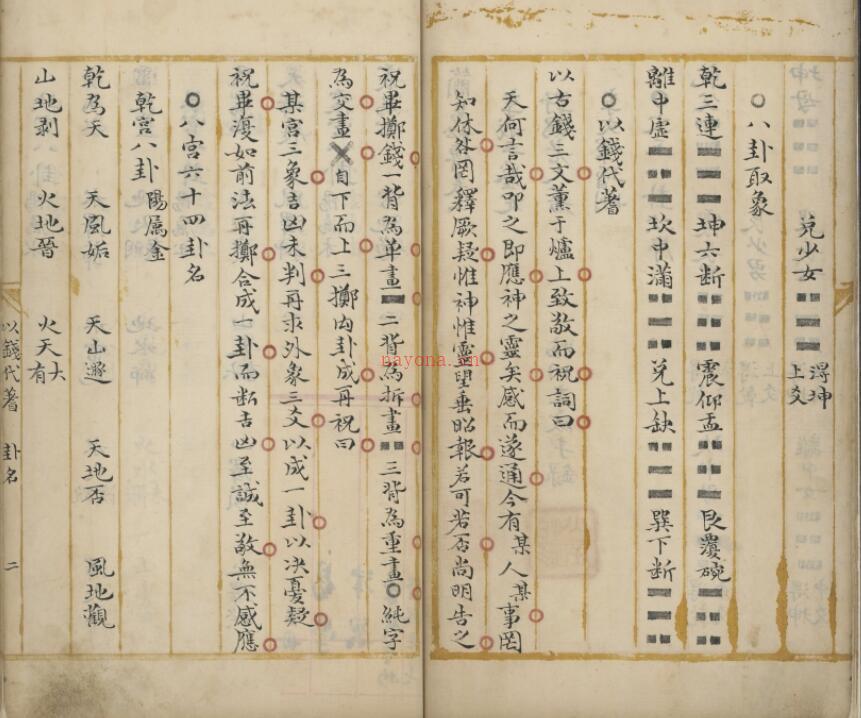 兌少女 ☱ 淂坤上爻
○八卦取象
乾三連 ☰ 坤六断 ☷ 震仰盂 ☳ 艮覆碗 ☶
離中虛 ☲ 坎中滿 ☵ 兌上缺 ☱ 巽下断 ☴
○以錢代蓍
以古錢三文薰于爐上致敬而祝詞曰
天何言哉叩之即應神之靈矣感而遂通今有某人某事罔
知休咎罔釋厥疑惟神惟靈望垂昭報若可若否尚明告之
祝畢擲錢一背為单畫⚊二背為拆畫⚋三背為重畫○純字
為交畫✕自下而上三擲内卦成再祝曰
某宮三象吉凶未判再求外象三爻以成一卦以决憂疑
祝畢復如前法再擲合成一卦而断吉凶至誠至敬無不感應
○八宮六十四卦名
乾宮八卦 陽属金
乾為天 天風姤 天山遯 天地否 風地觀
山地剥 火地晉 火天大有
以錢代蓍 卦名 二
nayona.cn